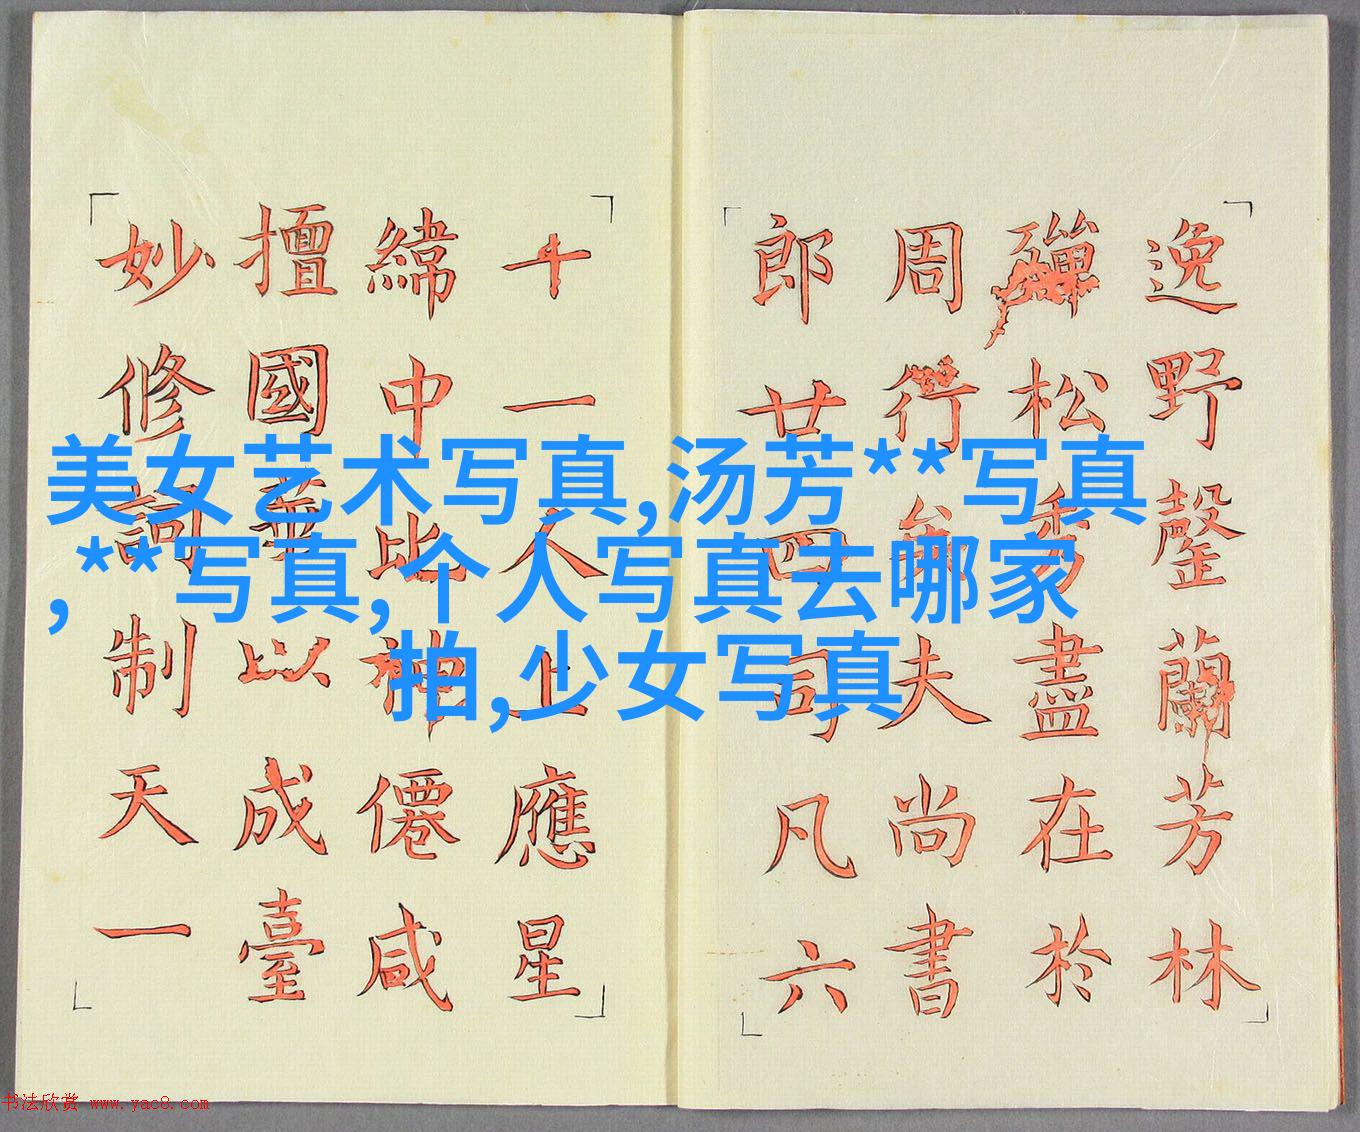 逸野罄蘭芳林
殫松秀盡在於
周行矣夫尚書
郎廿四司凡六
十一人上應星
緯中比神僊咸
擅國華以成臺
妙修詞制天一
美女艺术写真,汤芳**写真
,**写真,个人写真去哪家
拍,少女写真
书法欣赏 www.yac8.com